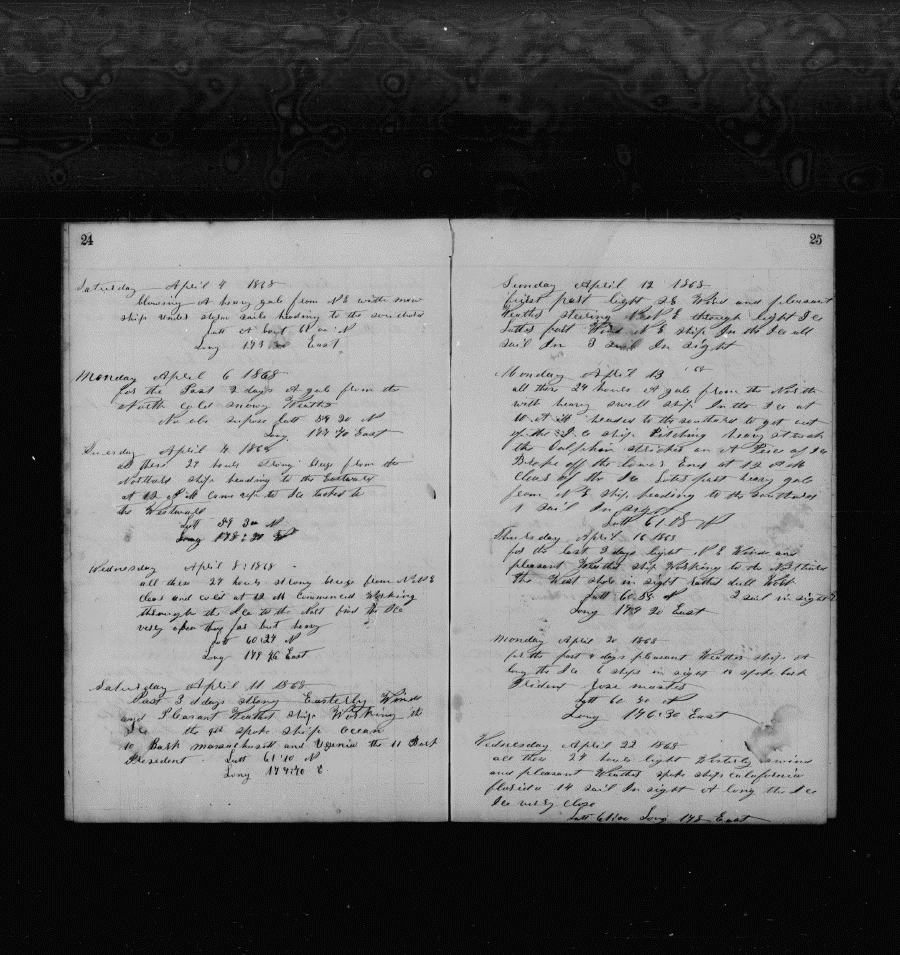 24
Saturday April 4 1868
blowing A heavy gale from N E with snow
ship under storm sails heading to the
Latt A bout 61 00 N
Long 179 30 East
Monday April 6 1868
for the Past 2 days A gale from the
North Cold snowy Weather
No obs Latt 59 20 N
Long 177 40 East
April 7 1868
all these 24 hours strong breeze from the
Northard ship heading to the Eastward
at 12 P M Came up to Ice tacked to
the Westward
Latt 59 30 N
Long 178:20 W
Wednesday April 8: 1868
all these 24 hours strong breeze from
Clear and cold at 12 M Commenced Working
through the Ice to the find the Ice
very open they far but heavy
Latt 60:27 N
Long 179 46 East
Saturday April 11 1868
Past 3 days strong Easterly Winds
and Pleasant Weather ship Working in the
Ice the 9th spoke ship Ocean
10 Bark Massachusett and Virginia the 11 Bark
President Latt 61:10 N
Long 179:40 E
25
Sunday April 12 1868
first part light S E Wind and pleasant
Weather steering N E through light Ice
Latter part Wind N E ship In the Ice all
sail In 3 sail In sight
Monday April 13
all these 24 hours A gale from the North
with heavy swell ship In the Ice at
headed to the southard to get out
of the Ice ship Pitching heavy struck
the Dolphin striker on A Peice of Ice
Broke off the lower End at 12 P M
Clear of the Ice Latter part heavy gale
from N E ship heading to the Southard
1 sail In sight
Latt 61:18 N
Thursday April 16 1868
for the last 3 days light N E Winds and
pleasant Weather ship Working to the Northard
the West shore in sight rather dull Work
Latt 60 54 N 2 sail in sight
Long 179 20 East
Monday April 20 1868
for the past 4 days pleasant Weather ship A
long the Ice 6 ships in sight spoke bark
Trident Jose master
Latt 60 30 N
Long 176:30 East
Wednesday April 22 1868
all these 24 hours light Westerly winds
and pleasant Weather spoke ships California
florida 14 sail In sight A long the Ice
Ice very close
Latt 61:00 Long 178 East